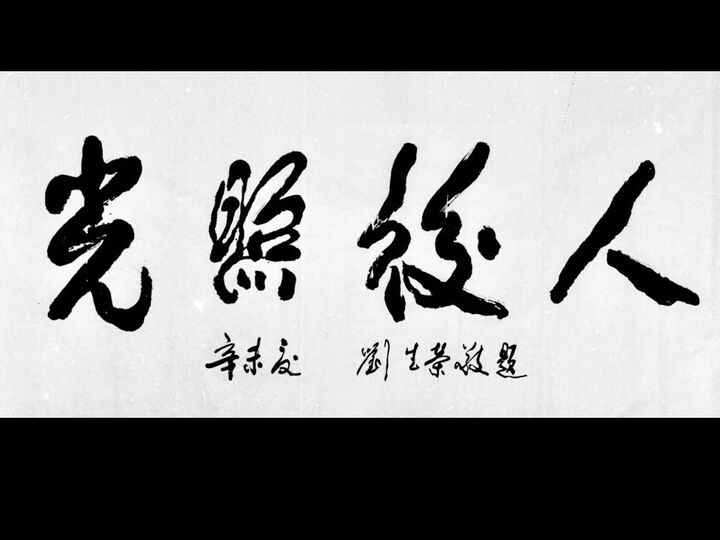 光照後人
辛未夏 劉生榮敬題